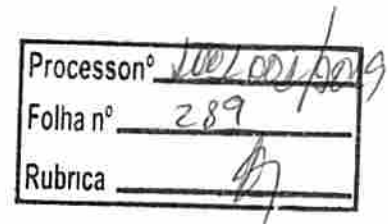 Processo nº
Folha nº 289
Rubrica